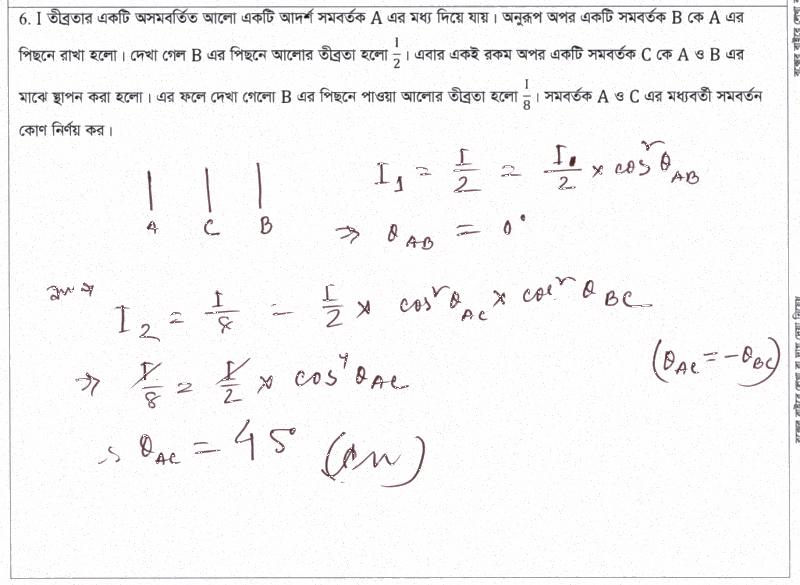 6. I তীব্রতার একটি অসমবর্তিত আলো একটি আদর্শ সমবর্তক A এর মধ্য দিয়ে যায়। অনুরূপ অপর একটি সমবর্তক B কে A এর
পিছনে রাখা হলো। দেখা গেল B এর পিছনে আলোর তীব্রতা হলো I/2। এবার একই রকম অপর একটি সমবর্তক C কে A ও B এর
মাঝে স্থাপন করা হলো। এর ফলে দেখা গেলো B এর পিছনে পাওয়া আলোর তীব্রতা হলো I/8। সমবর্তক A ও C এর মধ্যবর্তী সমবর্তন
কোণ নির্ণয় কর।
A C B
I₁ = I/2 = I/2 × cos²θ_AB
⇒ θ_AB = 0°
I₂ = I/8 = I/2 × cos²θ_AC × cos²θ_BC
(θ_AC = -θ_BC)
⇒ I/8 = I/2 × cos⁴θ_AC
θ_AC = 45° (Ans)